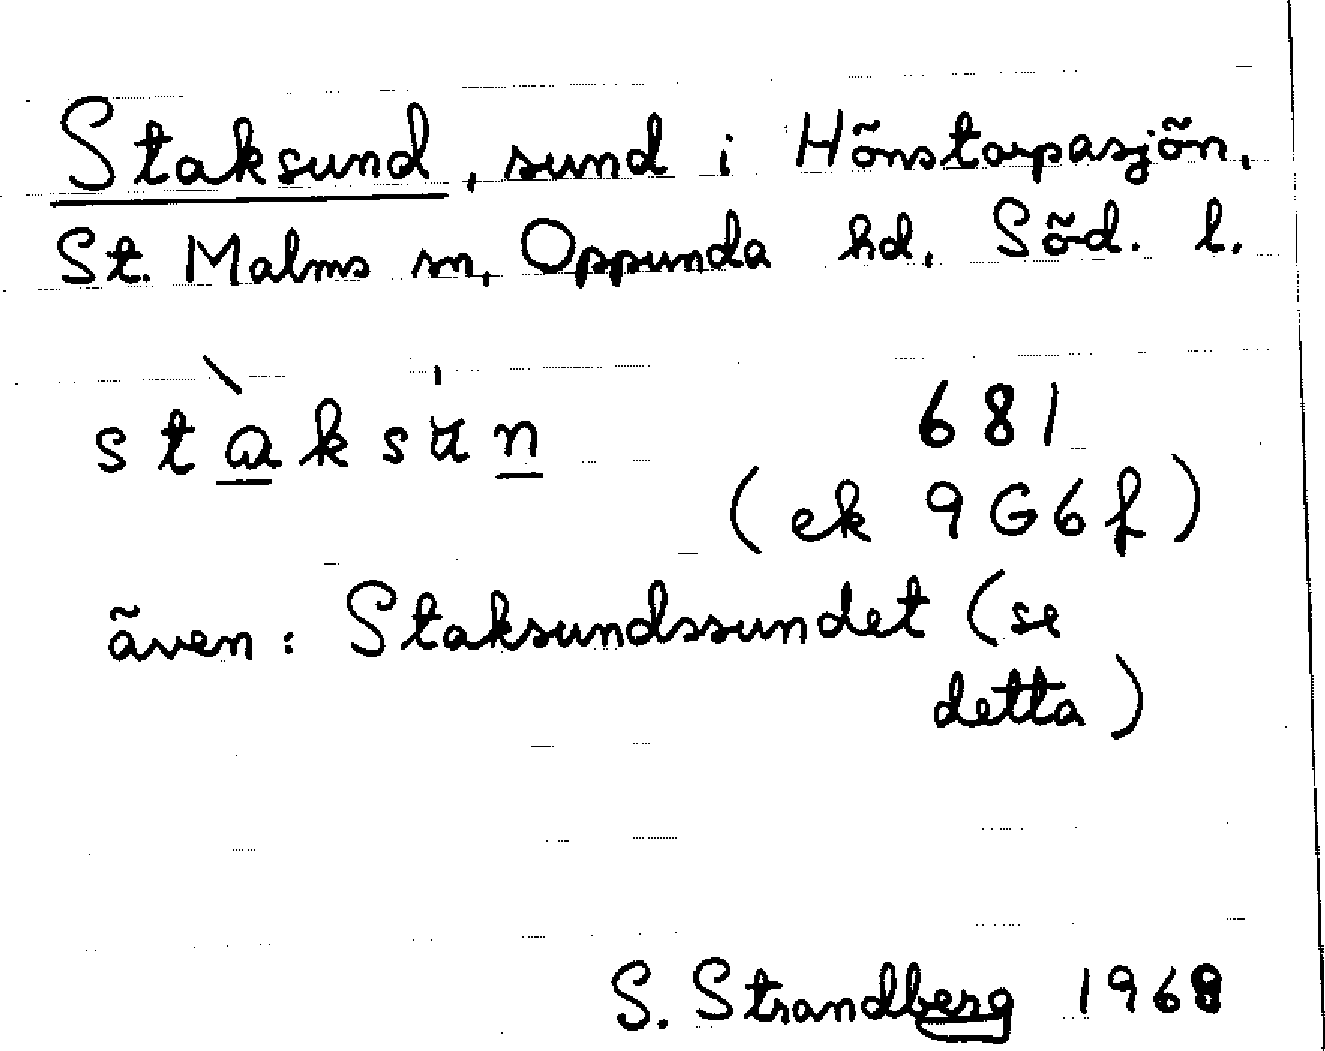 Staksund, sund i Hönstorpasjön,
St. Malms sn, Oppunda hd. Söd. l.
stàksu̇n 681
(ek 9G6f)
även: Staksundssundet (se
detta)
S. Strandberg 1968